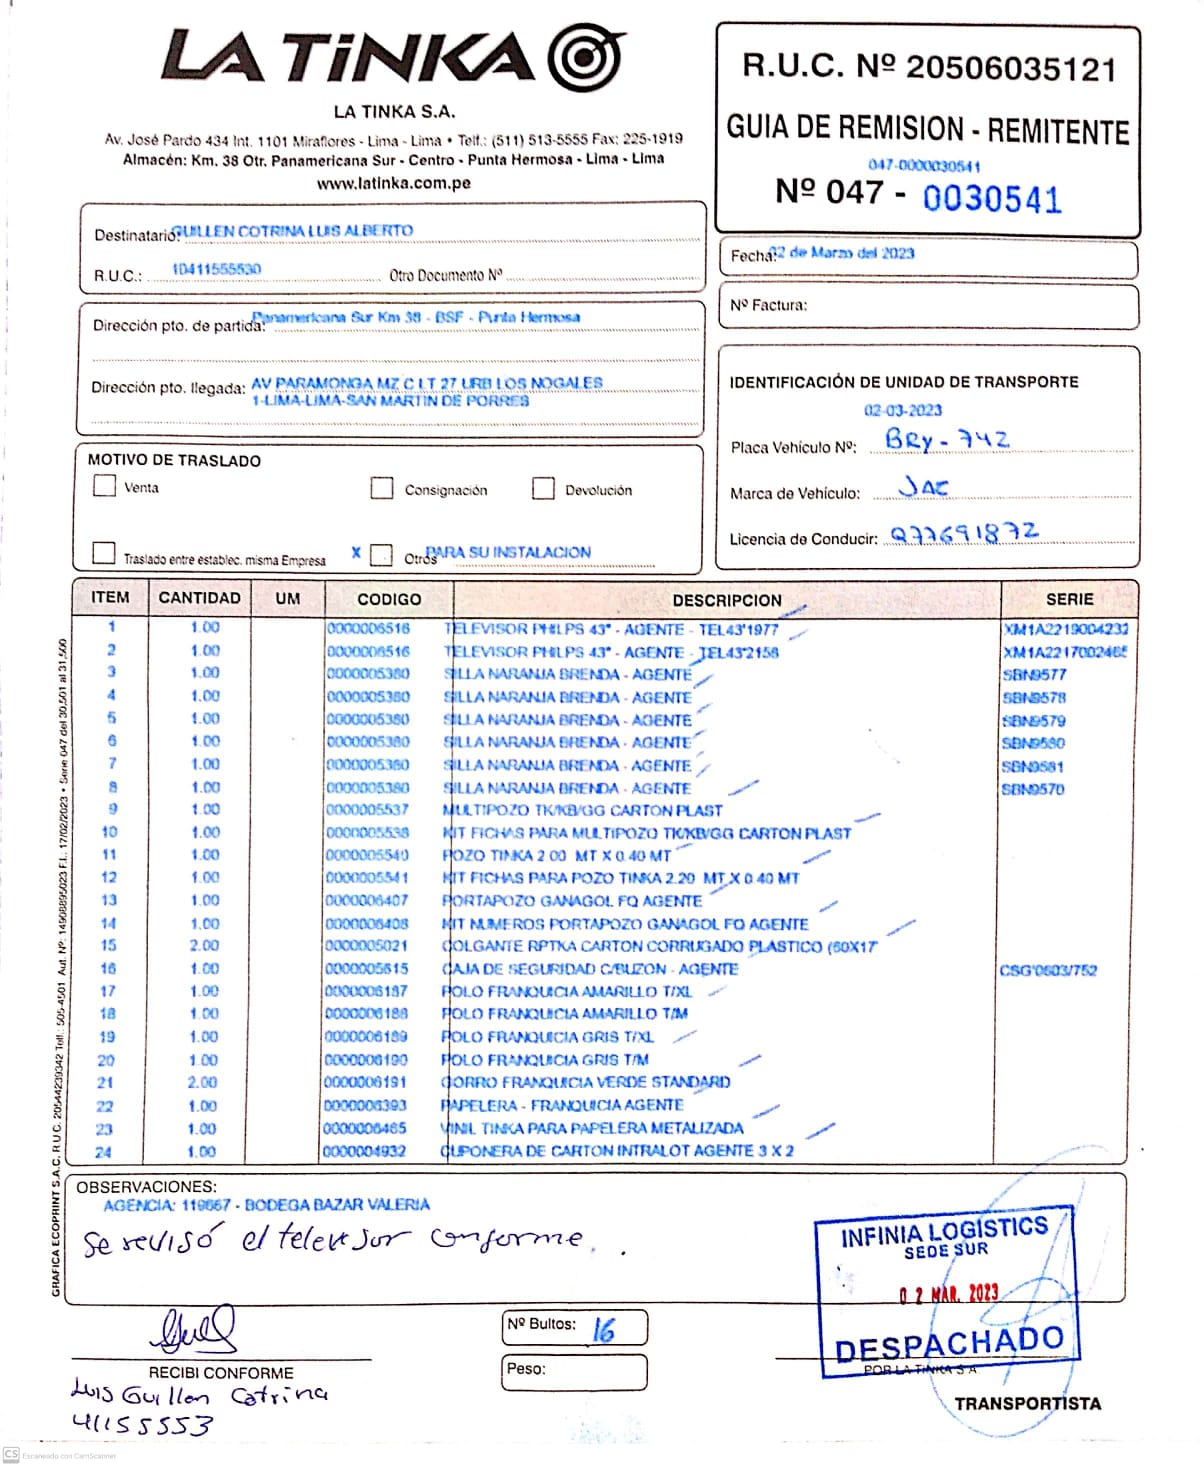 LA TiNKA
LA TINKA S.A.
Av. José Pardo 434 Int. 1101 Miraflores - Lima - Lima • Telf.: (511) 513-5555 Fax: 225-1919
Almacén: Km. 38 Otr. Panamericana Sur - Centro - Punta Hermosa - Lima - Lima
www.latinka.com.pe
R.U.C. Nº 20506035121
GUIA DE REMISION - REMITENTE
047-0000030541
Nº 047 - 0030541
Destinatario: GUILLEN COTRINA LUIS ALBERTO
R.U.C.: 10411555530 Otro Documento Nº
Fecha: 02 de Marzo del 2023
Nº Factura:
Dirección pto. de partida: Panamericana Sur Km 38 - BSF - Punta Hermosa
Dirección pto. llegada: AV PARAMONGA MZ C LT 27 URB LOS NOGALES
1-LIMA-LIMA-SAN MARTIN DE PORRES
IDENTIFICACIÓN DE UNIDAD DE TRANSPORTE
02-03-2023
Placa Vehículo Nº: BRY-742
Marca de Vehículo: JAC
Licencia de Conducir: Q77691872
MOTIVO DE TRASLADO
Venta Consignación Devolución
Traslado entre establec. misma Empresa X Otros PARA SU INSTALACION
ITEM CANTIDAD UM CODIGO DESCRIPCION SERIE
1 1.00 0000006516 TELEVISOR PHILPS 43" - AGENTE - TEL43'1977 XM1A2219004232
2 1.00 0000006516 TELEVISOR PHILPS 43" - AGENTE - TEL43'2158 XM1A2217002465
3 1.00 0000005380 SILLA NARANJA BRENDA - AGENTE SBN9577
4 1.00 0000005380 SILLA NARANJA BRENDA - AGENTE SBN9578
5 1.00 0000005380 SILLA NARANJA BRENDA - AGENTE SBN9579
6 1.00 0000005380 SILLA NARANJA BRENDA - AGENTE SBN9580
7 1.00 0000005380 SILLA NARANJA BRENDA - AGENTE SBN9581
8 1.00 0000005380 SILLA NARANJA BRENDA - AGENTE SBN9570
9 1.00 0000005537 MULTIPOZO TK/KB/GG CARTON PLAST
10 1.00 0000005538 KIT FICHAS PARA MULTIPOZO TK/KB/GG CARTON PLAST
11 1.00 0000005540 POZO TINKA 2.00 MT X 0.40 MT
12 1.00 0000005541 KIT FICHAS PARA POZO TINKA 2.20 MT X 0.40 MT
13 1.00 0000006407 PORTAPOZO GANAGOL FQ AGENTE
14 1.00 0000006408 KIT NUMEROS PORTAPOZO GANAGOL FQ AGENTE
15 2.00 0000005021 COLGANTE RPTKA CARTON CORRUGADO PLASTICO (60X17
16 1.00 0000005615 CAJA DE SEGURIDAD C/BUZON - AGENTE CSG'0603/752
17 1.00 0000006187 POLO FRANQUICIA AMARILLO T/XL
18 1.00 0000006188 POLO FRANQUICIA AMARILLO T/M
19 1.00 0000006189 POLO FRANQUICIA GRIS T/XL
20 1.00 0000006190 POLO FRANQUICIA GRIS T/M
21 2.00 0000006191 GORRO FRANQUICIA VERDE STANDARD
22 1.00 0000006393 PAPELERA - FRANQUICIA AGENTE
23 1.00 0000006465 VINIL TINKA PARA PAPELERA METALIZADA
24 1.00 0000004932 CUPONERA DE CARTON INTRALOT AGENTE 3 X 2
GRAFICA ECOPRINT S.A.C. R.U.C. 20544239342 Telf.: 505-4501 Aut. Nº: 14968895023 F.I.: 17/02/2023 • Serie 047 del 30,501 al 31,500
OBSERVACIONES:
AGENCIA: 119667 - BODEGA BAZAR VALERIA
Se revisó el televisor conforme.
INFINIA LOGÍSTICS
SEDE SUR
02 MAR. 2023
DESPACHADO
POR LA TINKA S.A.
TRANSPORTISTA
Nº Bultos: 16
Peso:
RECIBI CONFORME
Luis Guillen Cotrina
41155553
CS Escaneado con CamScanner